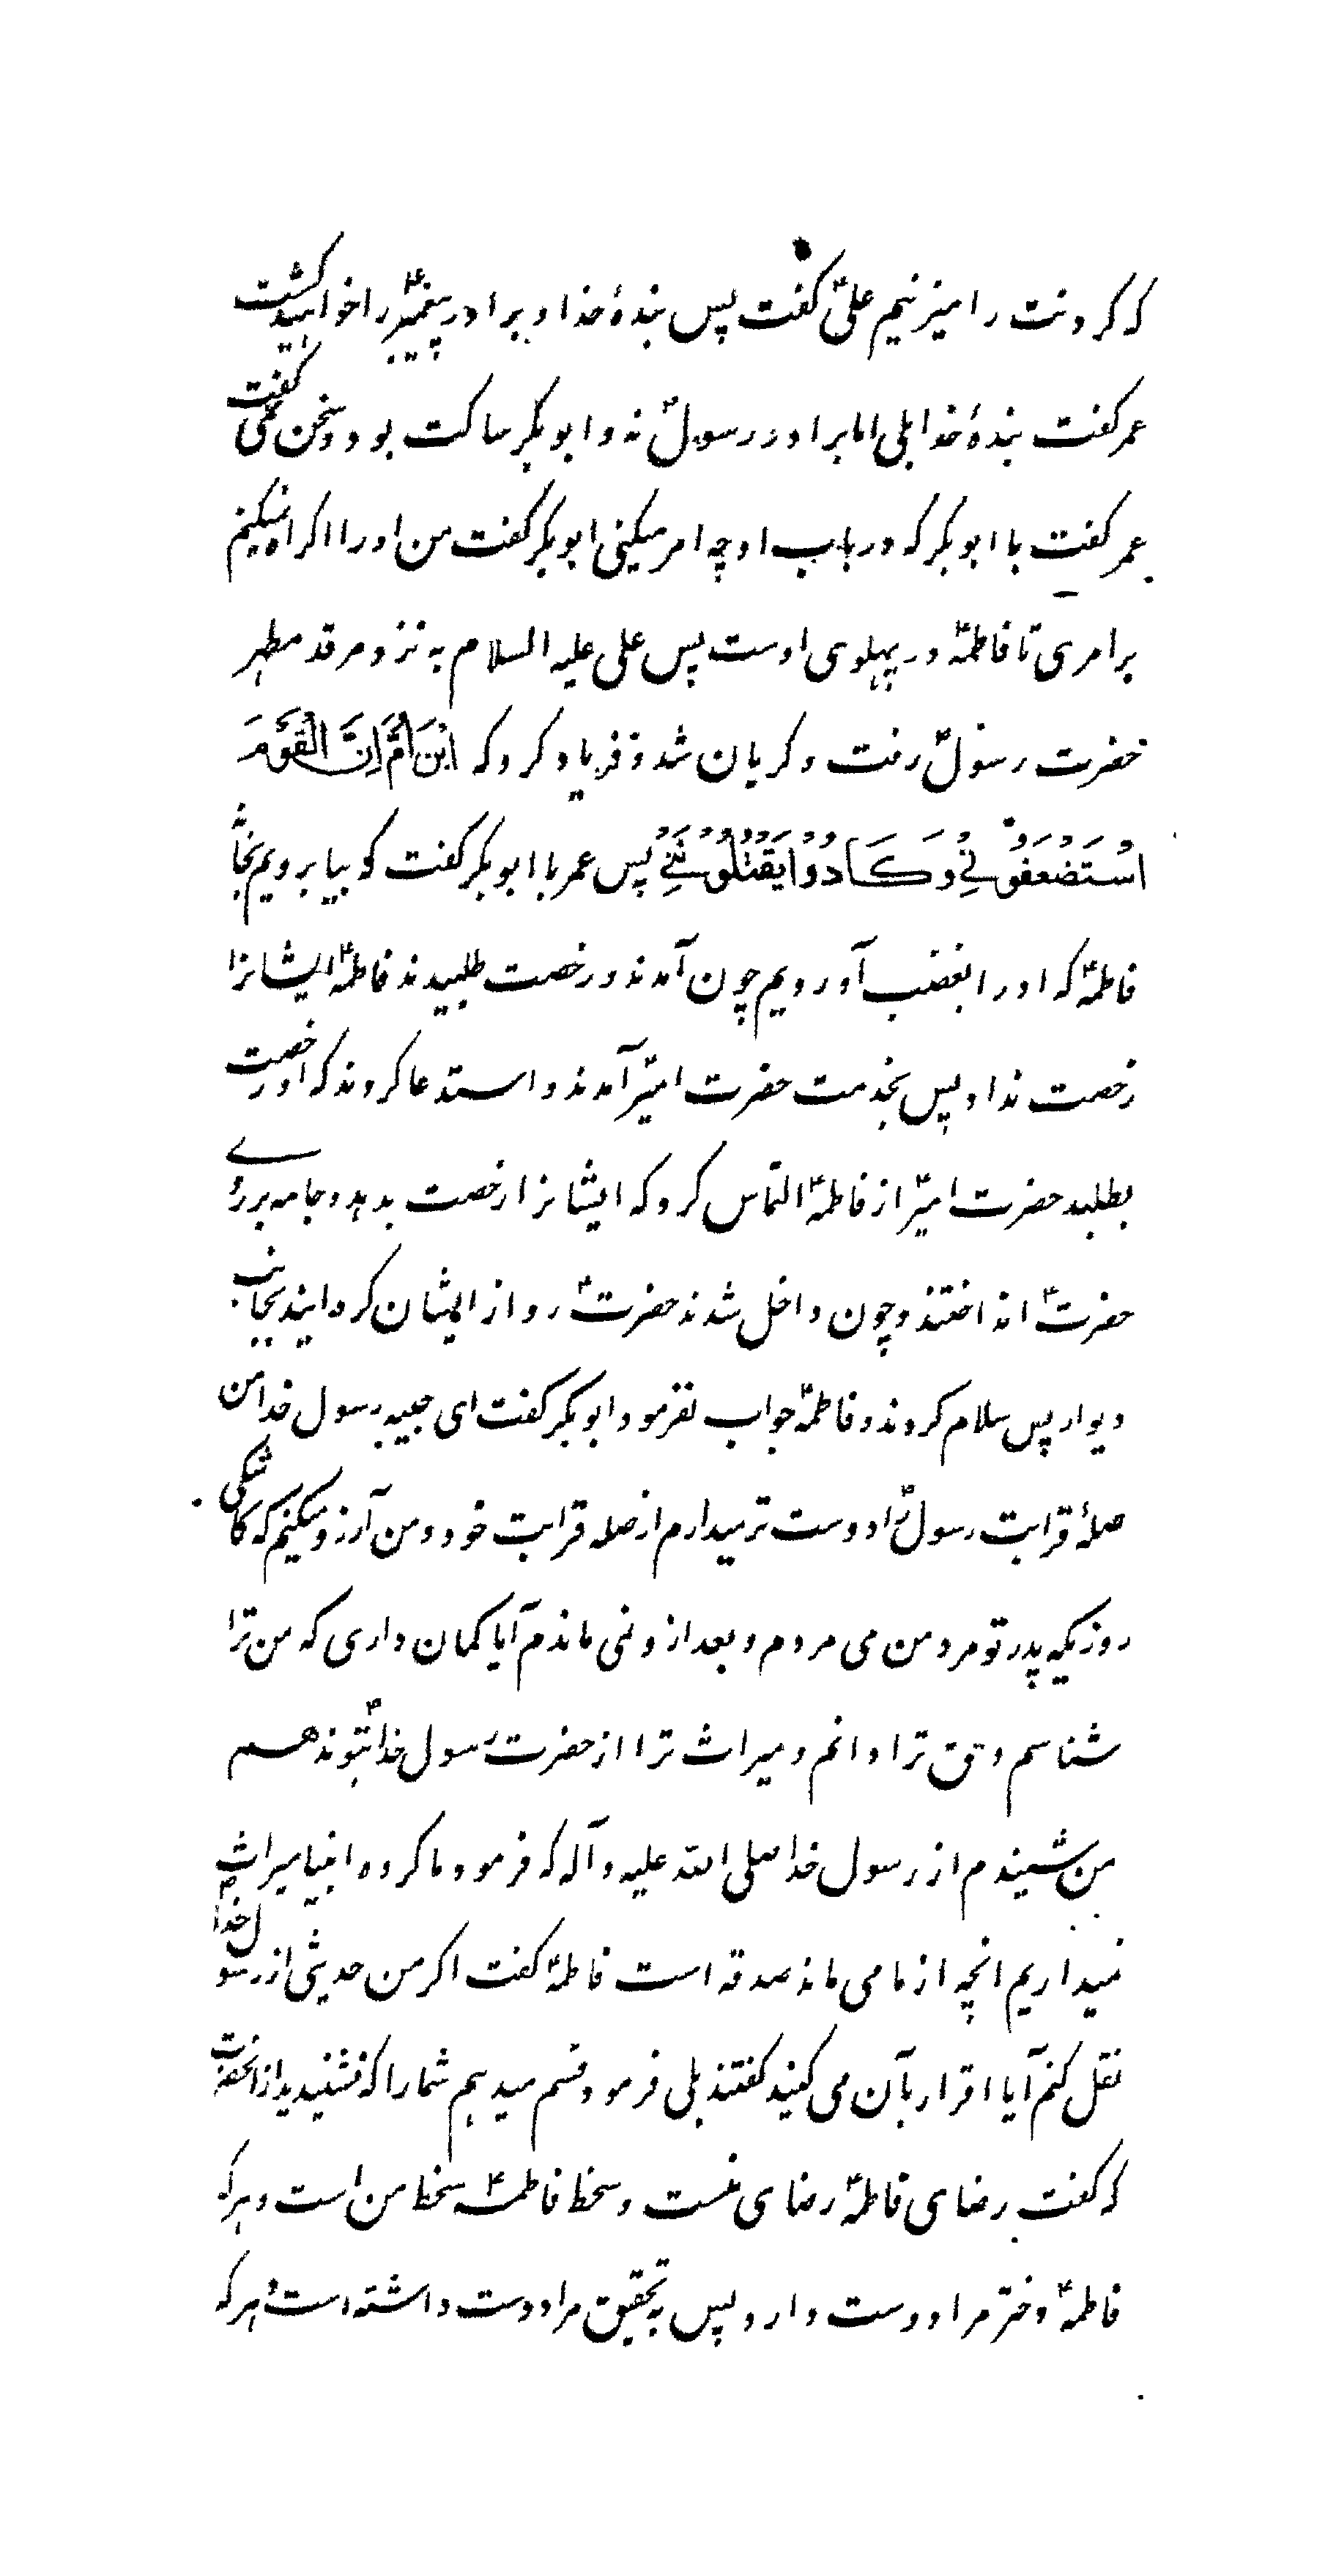 که کردنت را میزنیم علیؑ گفت پس بندهٔ خدا و برادر پیغمبرؐ را خواهید کشت
عمر گفت بندهٔ خدا بلی اما برادر رسولؐ نه و ابوبکر ساکت بود و سخن نمی گفت
عمر گفت با ابوبکر که در باب او چه امر میکنی ابوبکر گفت من او را اکراه نمیکنم
بر امری تا فاطمهؑ در پهلوی اوست پس علی علیه السلام به نزد مرقد مطهر
حضرت رسولؐ رفت و کریان شد و فریاد کرد که ابْنَ اُمَّ اِنَّ الْقَوْمَ
اسْتَضْعَفُوْنِيْ وَكَادُوْا يَقْتُلُوْنَنِيْ پس عمر با ابوبکر گفت که بیا برویم بخانهٔ
فاطمهؑ که او را بغضب آوردیم چون آمدند و رخصت طلبیدند فاطمهؑ ایشانرا
رخصت نداد پس بخدمت حضرت امیرؑ آمدند و استدعا کردند که او رخصت
بطلبد حضرت امیرؑ از فاطمهؑ التماس کرد که ایشانرا رخصت بدهد و جامه بر روے
حضرتؑ انداختند و چون داخل شدند حضرتؑ رو از ایشان کردانید بجانب
دیوار پس سلام کردند و فاطمهؑ جواب نفرمود ابوبکر گفت ای حبیبه رسول خدا من
صلهٔ قرابت رسولؐ را دوست تر میدارم از صله قرابت خود و من آرزو میکنم که کاشکی
روزیکه پدر تو مرد من می مردم و بعد از و نمی ماندم آیا کمان داری که من ترا
شناسم و حق ترا دانم و میراث ترا از حضرت رسول خداؐ بتو ندهم
من شنیدم از رسول خدا صلی الله علیه و آله که فرمود ما کروه انبیا میراث
نمیداریم انچه از ما می ماند صدقه است فاطمهؑ گفت اکر من حدیثی از رسول خداؐ
نقل کنم آیا اقرار بآن می کنید گفتند بلی فرمود قسم میدهم شما را که نشنیدید از انحضرت
که گفت رضای فاطمهؑ رضای منست و سخط فاطمهؑ سخط من است و هر که
فاطمهؑ دختر مرا دوست دارد پس به تحقیق مرا دوست داشته است و هر که